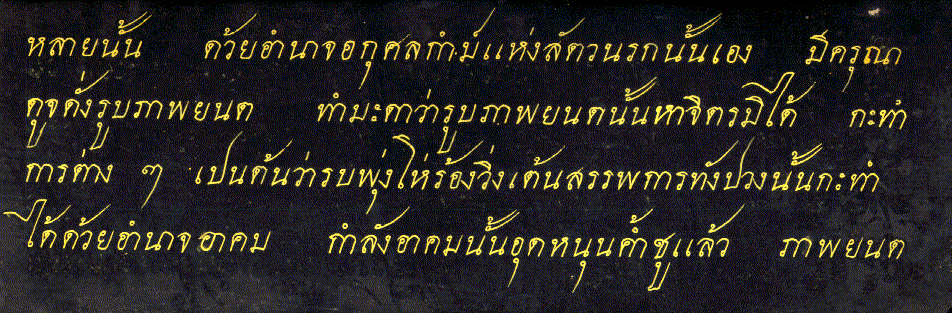 หลายนั้น ด้วยอำนาจอกุศลกำม์แห่งสัตวนรกนั้นเอง มีครุณา
ดูจดั่งรูบภาพยนต ทำมะดาว่ารูบภาพยนตนั้นหาจิตรมิได้ กะทำ
การต่าง ๆ เปนต้นว่ารบพุ่งไห่ร้องวิ่งเต้นสรรพการทังปวงนั้นกะทำ
ได้ด้วยอำนาจอาคม กำลังอาคมนั้นอุดหนุนค้ำชูแล้ว ภาพยนต